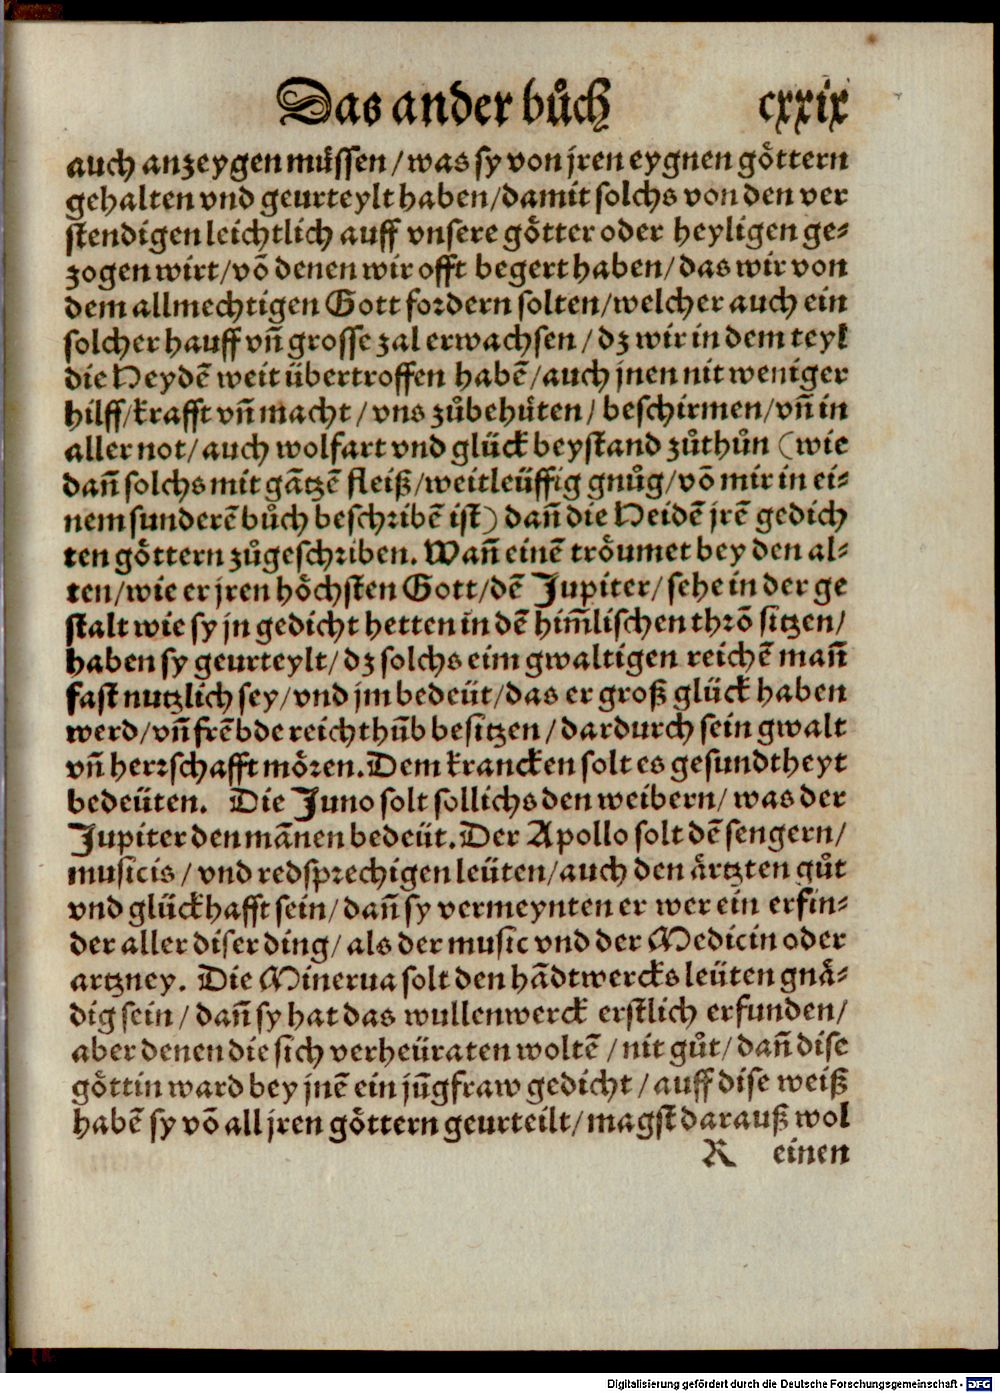 Das ander bůch cxxix
auch anzeygen müssen/was sy von jren eygnen göttern
gehalten vnd geurteylt haben/damit solchs von den ver
stendigen leichtlich auff vnsere götter oder heyligen ge⸗
zogen wirt/võ denen wir offt begert haben/das wir von
dem allmechtigen Gott fordern solten/welcher auch ein
solcher hauff vñ grosse zal erwachsen/dz wir in dem teyl
die Heydẽ weit übertroffen habẽ/auch jnen nit weniger
hilff/krafft vñ macht/vns zůbehüten/beschirmen/vñ in
aller not/auch wolfart vnd glück beystand zůthůn (wie
dañ solchs mit gãtzẽ fleiß/weitleüffig gnůg/võ mir in ei⸗
nem sunderẽ bůch beschribẽ ist) dañ die Heidẽ jrẽ gedich
ten göttern zůgeschriben. Wañ einẽ tröumet bey den al⸗
ten/wie er jren höchsten Gott/dẽ Jupiter/sehe in der ge
stalt wie sy jn gedicht hetten in dẽ him̃lischen thrõ sitzen/
haben sy geurteylt/dz solchs eim gwaltigen reichẽ mañ
fast nutzlich sey/vnd jm bedeüt/das er groß glück haben
werd/vñ frẽbde reichthũb besitzen/dardurch sein gwalt
vñ herrschafft mören. Dem krancken solt es gesundtheyt
bedeüten. Die Juno solt sollichs den weibern/was der
Jupiter den mãnen bedeüt. Der Apollo solt dẽ sengern/
musicis/vnd redsprechigen leüten/auch den ärtzten gůt
vnd glückhafft sein/dañ sy vermeynten er wer ein erfin⸗
der aller diser ding/als der music vnd der Medicin oder
artzney. Die Minerua solt den hãdtwercks leüten gnä⸗
dig sein/dañ sy hat das wullenwerck erstlich erfunden/
aber denen die sich verheüraten woltẽ/nit gůt/dañ dise
göttin ward bey jnẽ ein jũgfraw gedicht/auff dise weiß
habẽ sy võ all jren göttern geurteilt/magst darauß wol
R einen
Digitalisierung gefördert durch die Deutsche Forschungsgemeinschaft - DFG